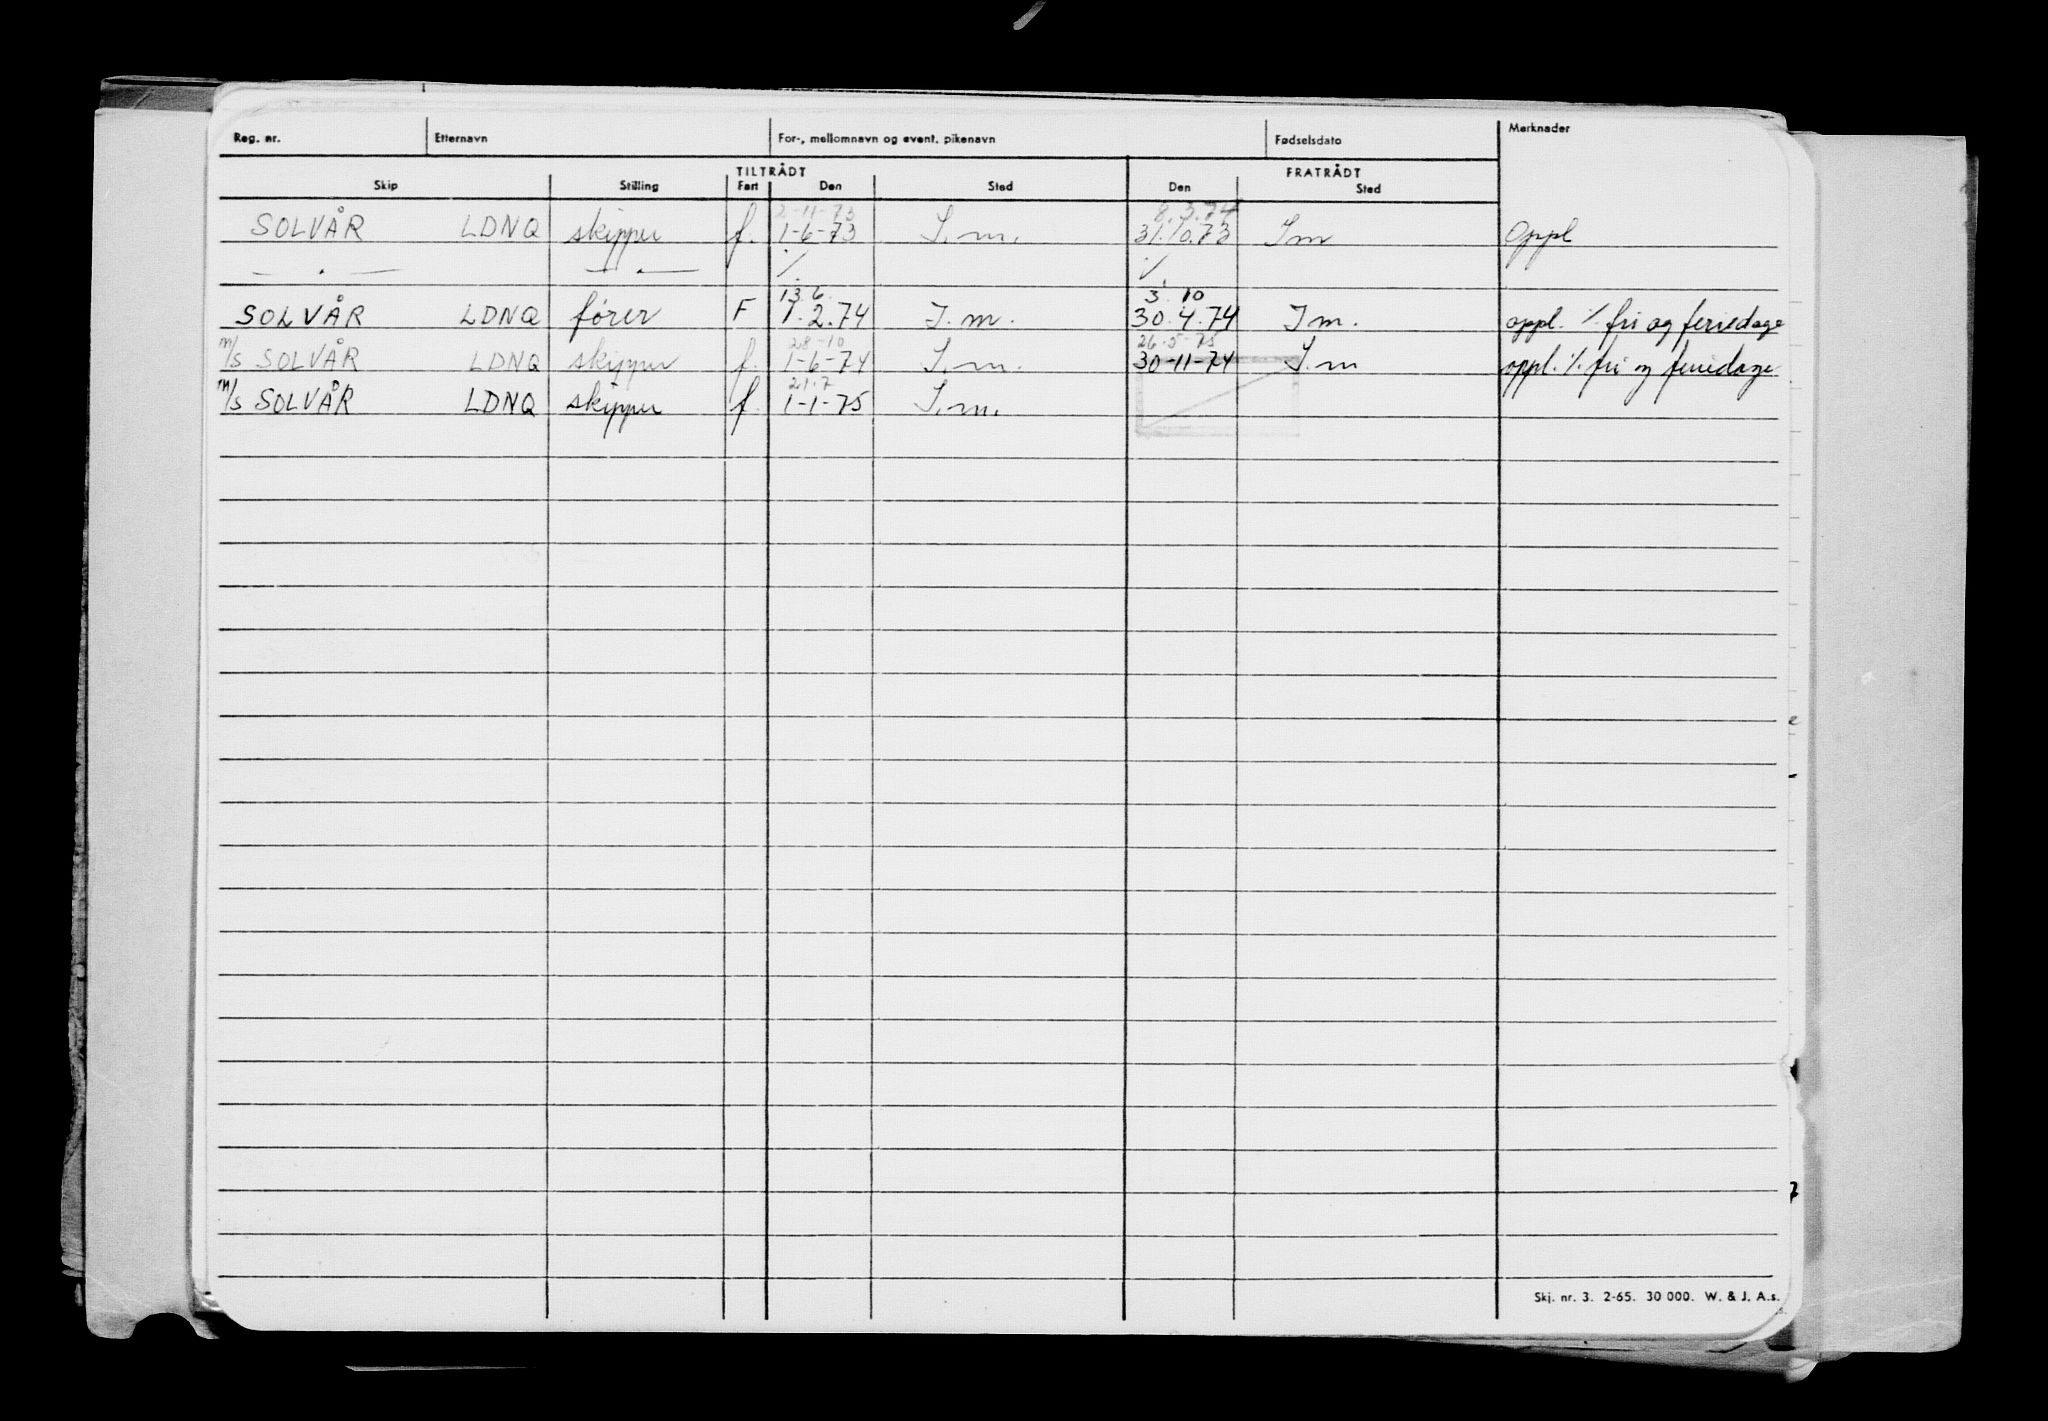 Reg. nr. Etternavn For-, mellomnavn og event. pikenavn Fødselsdato Merknader
TILTRÅDT FRATRÅDT
Skip Stilling Fart Den Sted Den Sted
2-11-73 8.3.74
SOLVÅR LDNQ skipper f. 1-6-73 I.m. 31.10.73 Im Oppl
— . — — . — ./. ./.
13.6. 3. 10
SOLVÅR LDNQ fører F 1.2.74 I.m. 30.4.74 Im. oppl. ./. fri og feriedage
28-10 26-5-75
M/S SOLVÅR LDNQ skipper f. 1-6-74 I.m. 30-11-74 I.m oppl. ./. fri og feriedage
21.7
M/S SOLVÅR LDNQ skipper f. 1-1-75 I.m.
Skj. nr. 3. 2-65. 30 000. W. & J. A.s.